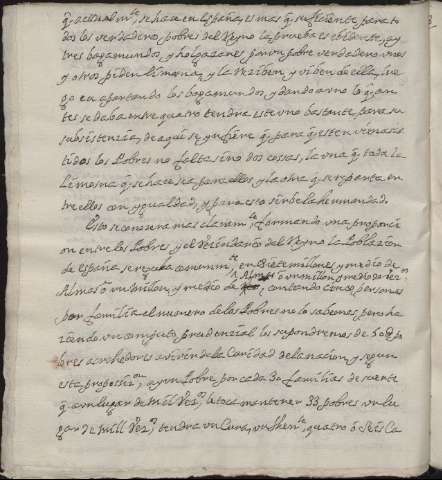 q̃ actualm.te se hace en España, es mas q̃ suficiente para to
dos los verdaderos pobres del Reyno la prueba es ebidente, ay
tres bagamundos, y holgazanes por un pobre verdadero, unos
y otros piden limosna, y la reziben y viben de ella, lue
go en apartando los bagamundos, y dando a uno lo q̃ an
tes se daba entre quatro tendra este uno bastante para su
subsistenzia, de aqui se ynfiere q̃ para q̃ esten bien asis
tidos los Pobres no falta sino dos cosas, la una q̃ toda la
Limosna q̃ se hace sea para ellos y la otra q̃ se reparta en
tre ellos con ygualdad, y para esto sirbe la hermandad.
Esto se conozera mas claram.te formando una proporci
on entre los Pobres, y el vezindario del Reyno la Poblazion
de España se regula comunm.te en siete millones y medio de
Almas o un millon y medio de vez.os
Almas o un millon, y medio de contando cinco personas
por familia el numero de los Pobres no lo sabemos pero ha
ziendo un computo prudenzial los supondremos de 50 @ po
bres acrehedores a vivir de la Caridad de la nazion, y segun
esta proposizi.on ay un Pobre, por cada 30 familias de suerte
q̃ a un lugar de mill vez.os le toca mantener 33 pobres un lu
gar de mill vez.os tendra un Cura, un then.te quatro o seis Ca